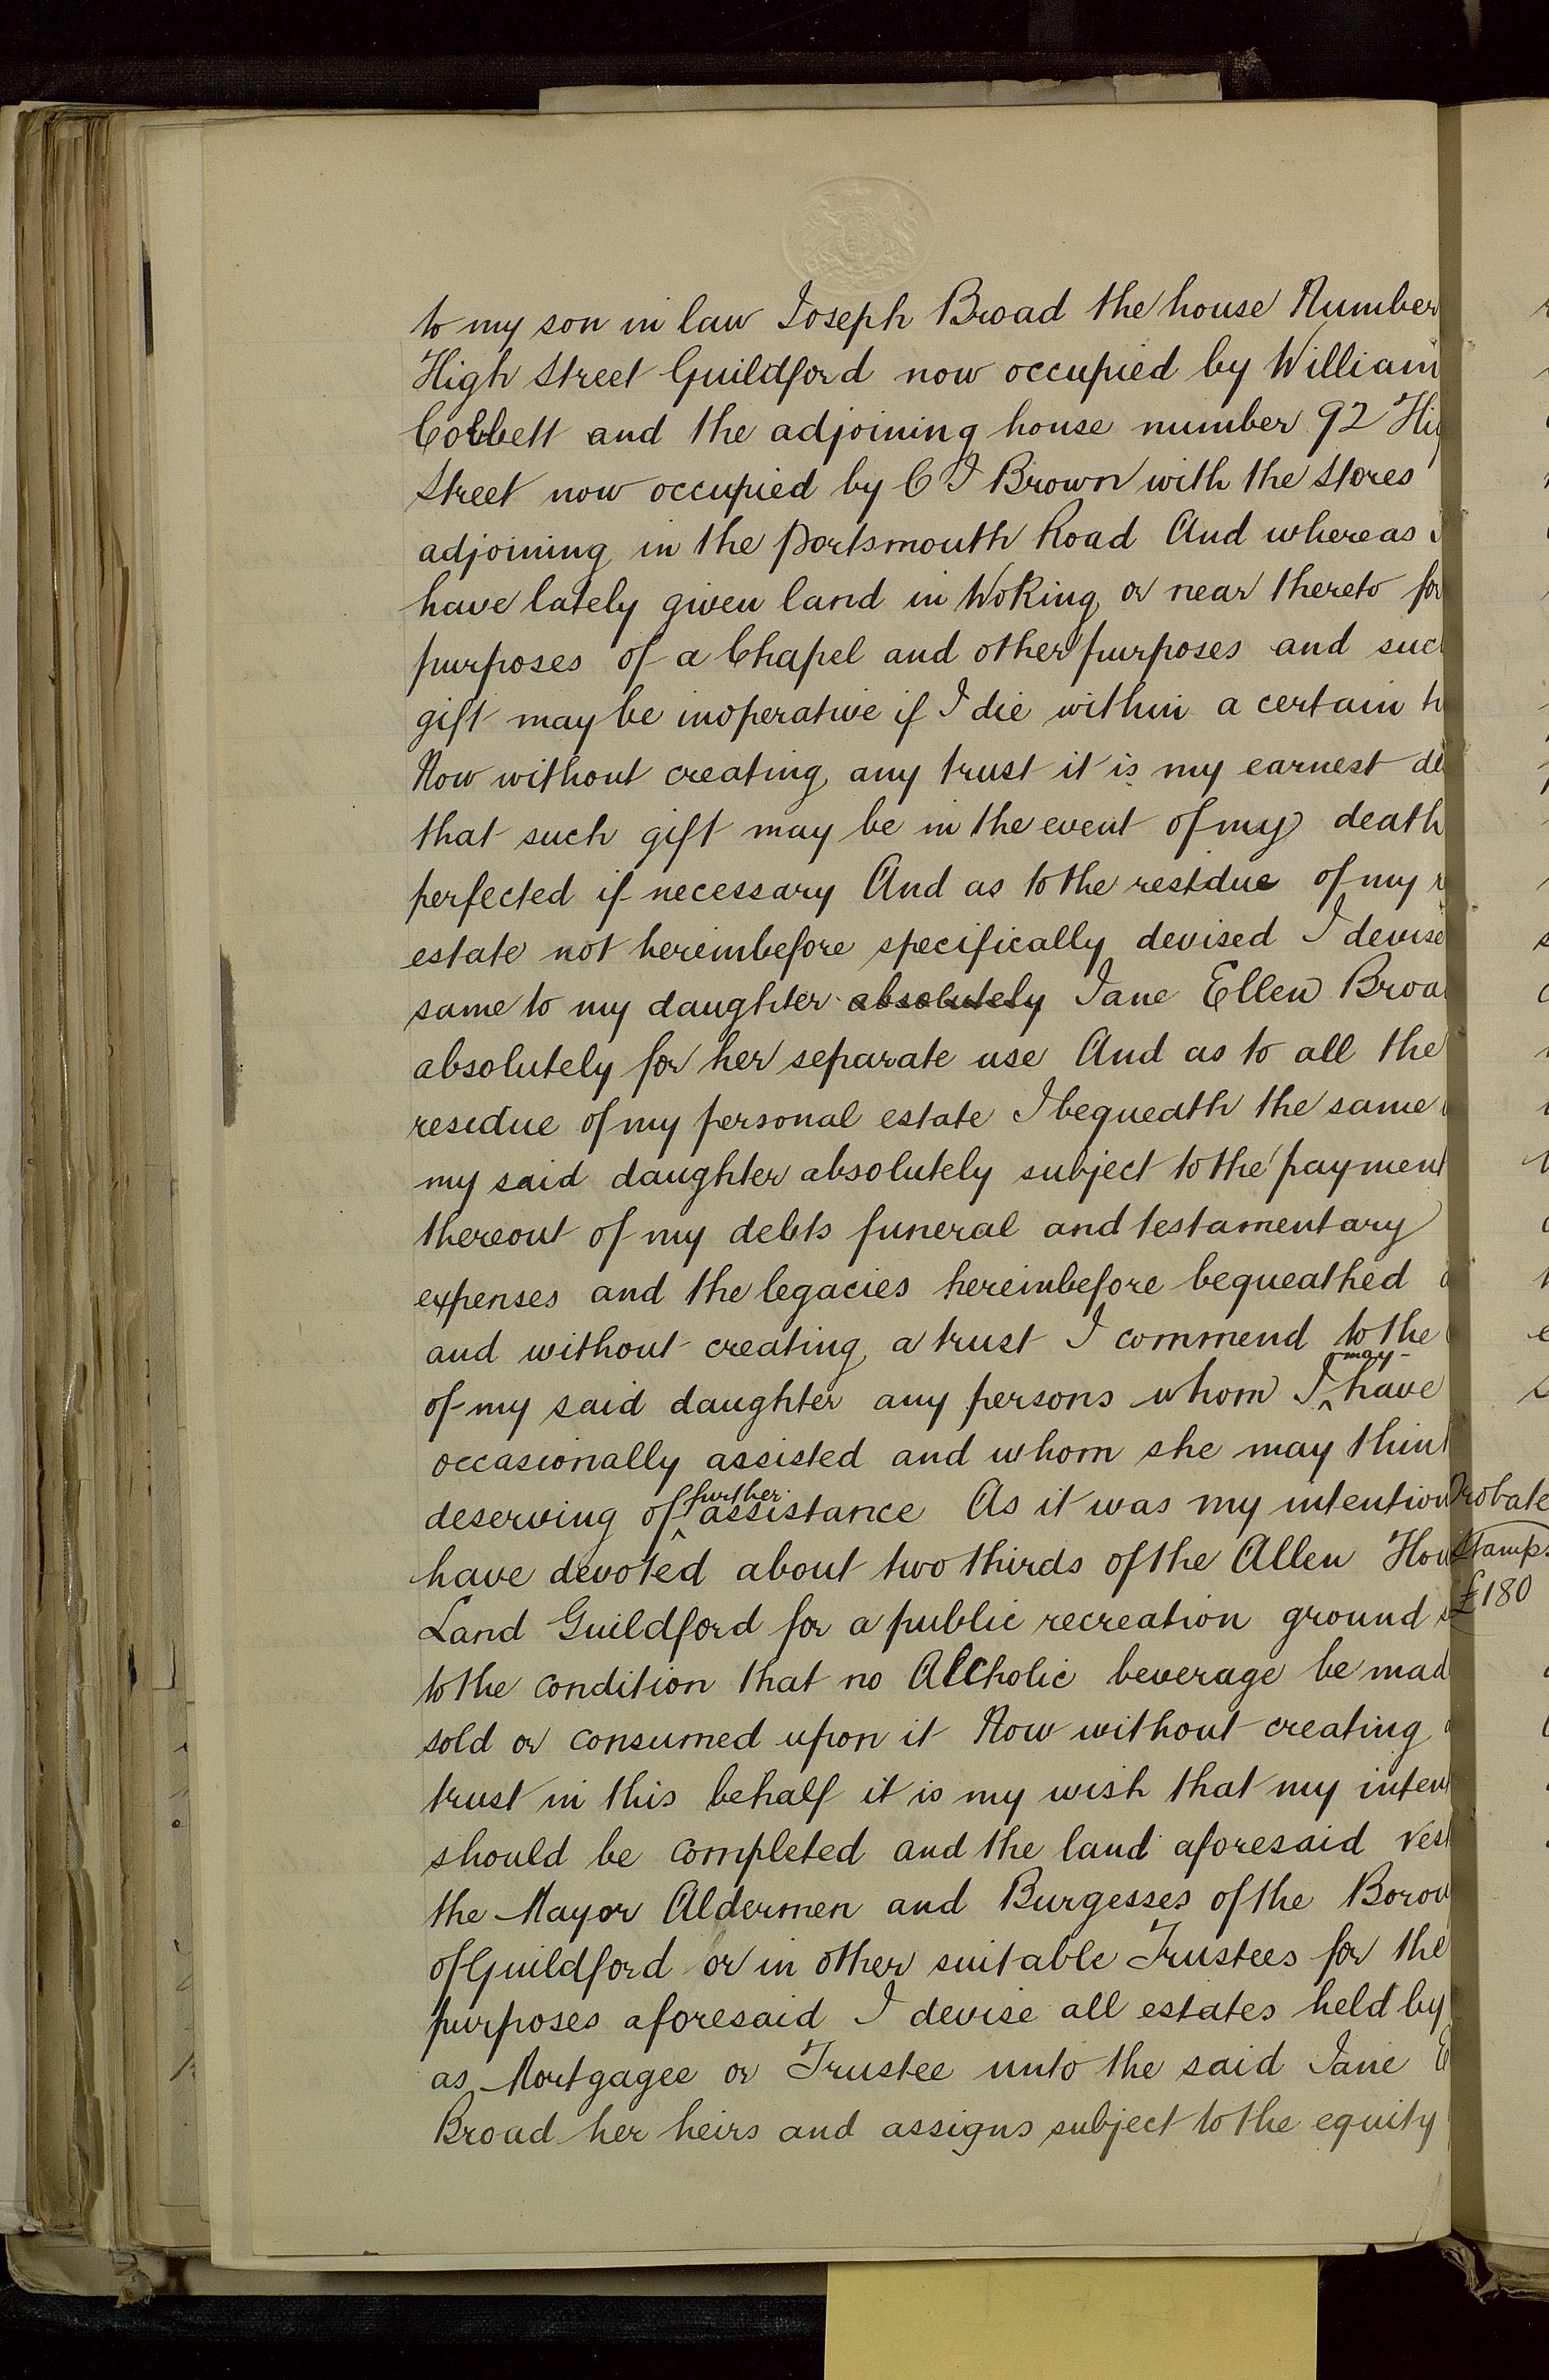 to my son in law Joseph Broad the house Number
High Street Guildford now occupied by William
Cobbett and the adjoining house number 92 Hig
Street now occupied by C J Brown with the stores
adjoining in the Portsmouth Road And whereas I
have lately given land in Woking or near thereto for
purposes of a Chapel and other purposes and such
gift may be inoperative if I die within a certain ti
Now without creating any trust it is my earnest de
that such gift may be in the event of my death
perfected if necessary And as to the residue of my r
estate not hereinbefore specifically devised I devise
same to my daughter absolutely Jane Ellen Broa
absolutely for her separate use And as to all the
residue of my personal estate I bequeath the same
my said daughter absolutely subject to the payment
thereout of my debts funeral and testamentary
expenses and the legacies hereinbefore bequeathed
and without creating a trust I commend to the
of my said daughter any persons whom I may have
occasionally assisted and whom she may think
deserving of further assistance As it was my intention
have devoted about two thirds of the Allen Hou
Land Guildford for a public recreation ground s
to the condition that no Alcholic beverage be mad
sold or consumed upon it Now without creating a
trust in this behalf it is my wish that my inten
should be completed and the land aforesaid vest
the Mayor Aldermen and Burgesses of the Borou
of Guildford or in other suitable Trustees for the
purposes aforesaid I devise all estates held by
as Mortgagee or Trustee unto the said Jane E
Broad her heirs and assigns subject to the equity
Probate
Stamps
£180